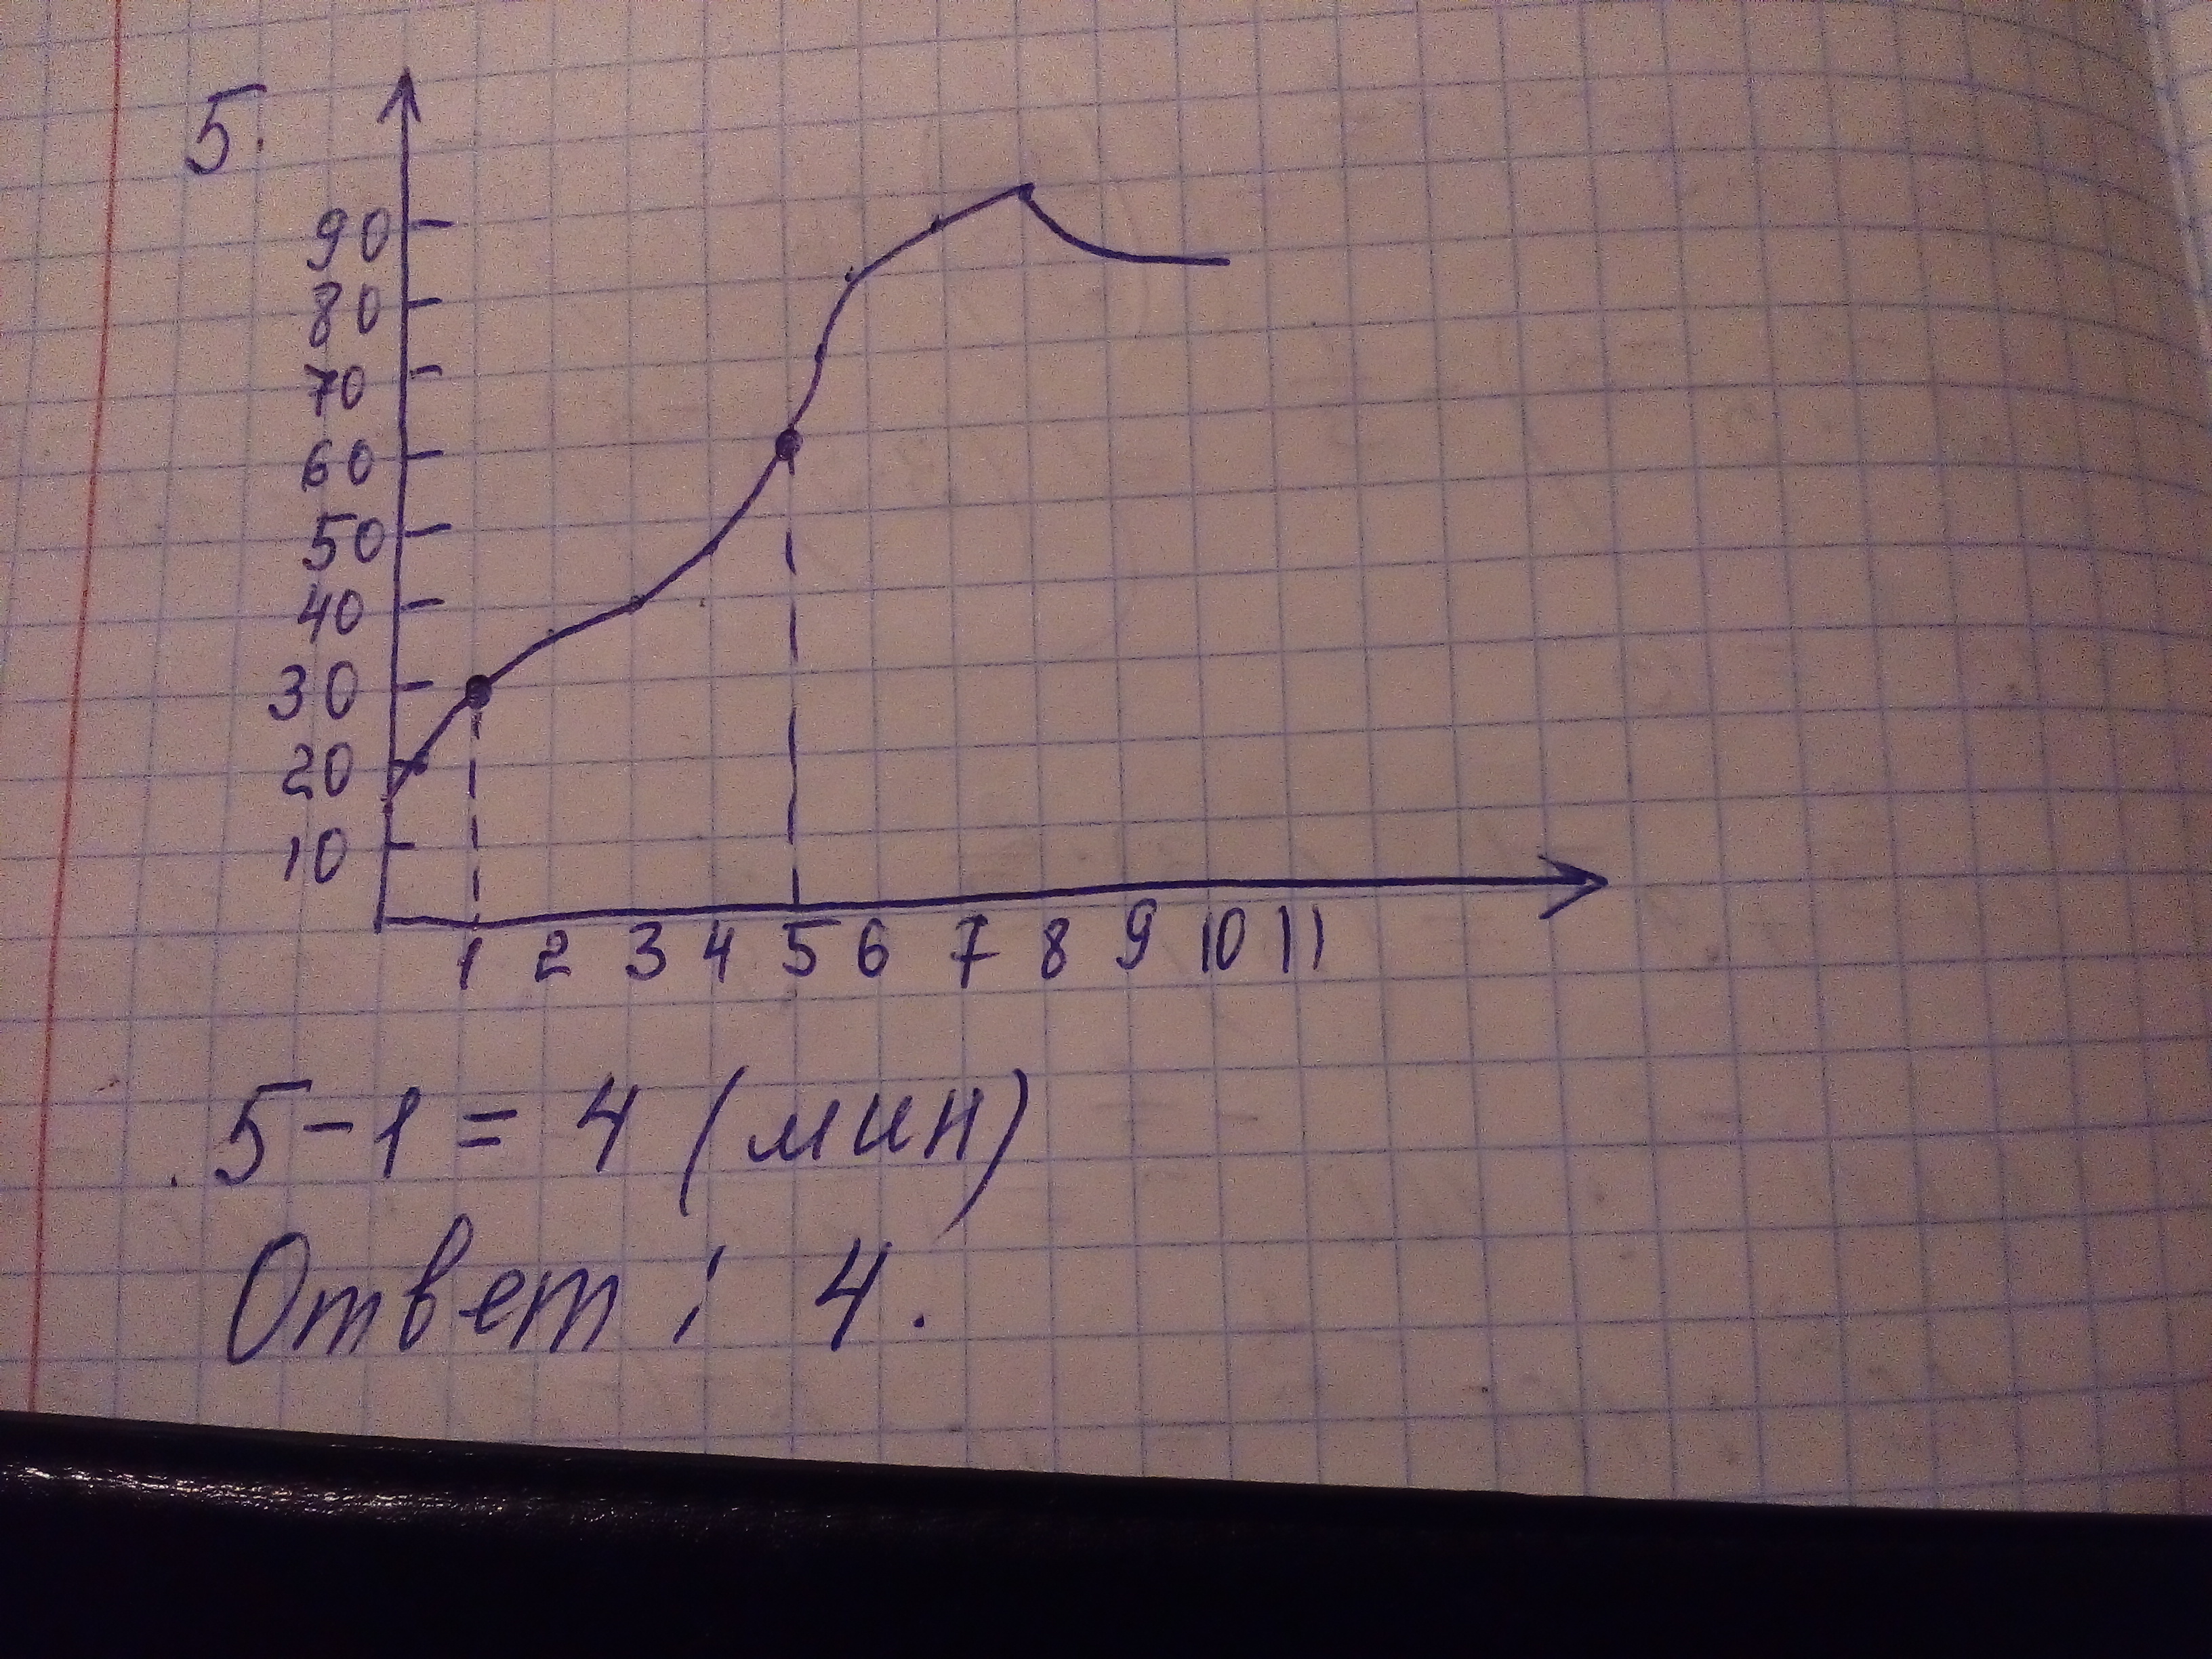 5.
90
80
70
60
50
40
30
20
10
1 2 3 4 5 6 7 8 9 10 11
5-1 = 4 (мин)
Ответ: 4.